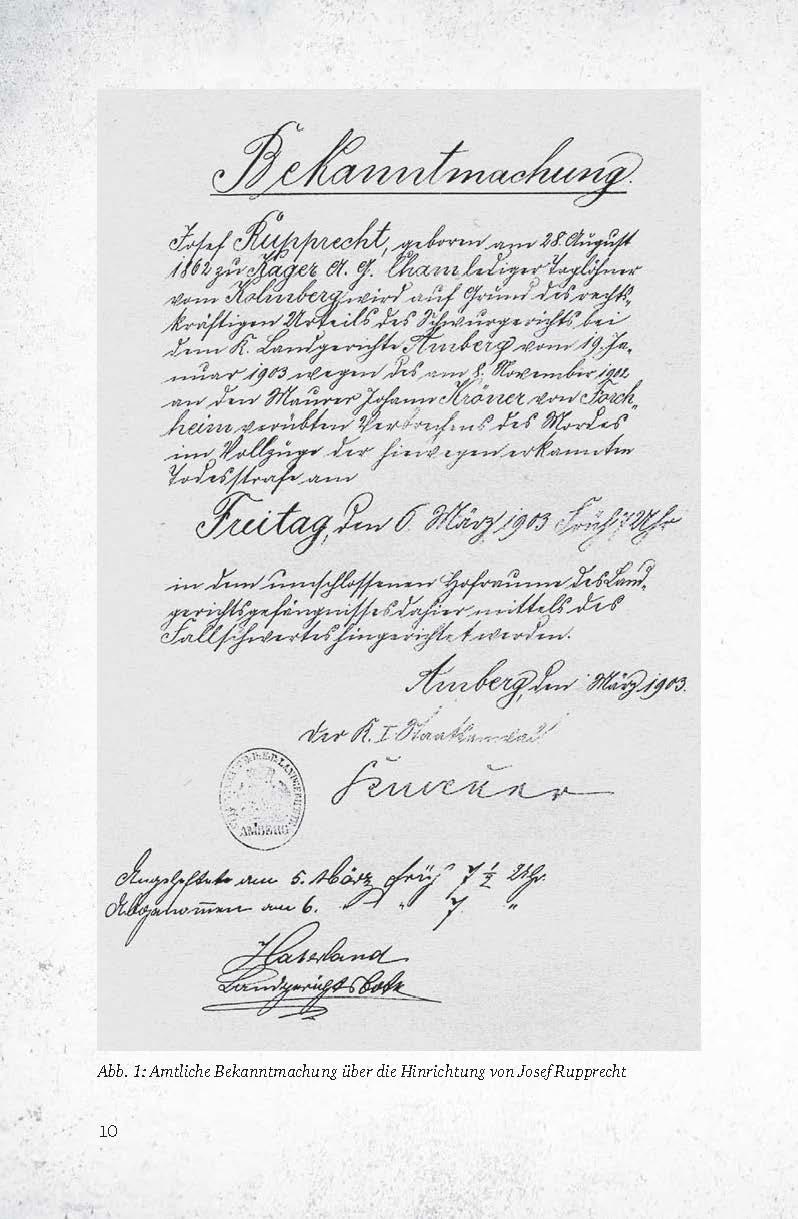 Bekanntmachung.
Josef Rupprecht, geboren am 28. August
1862 zu Kager A. G. Cham lediger Taglöhner
vom Kolmberg wird auf Grund des rechts-
kräftigen Urteils des Schwurgerichts bei
dem K. Landgerichte Amberg vom 19. Ja-
nuar 1903 wegen des am 8. November 1902
an den Maurer Johann Kröner von Forch-
heim verübten Verbrechens des Mordes
im Vollzuge der hiewegen erkannten
Todesstrafe am
Freitag, den 6. März 1903 Früh 7 Uhr
in dem umschlossenen Hofraume des Land-
gerichtsgefängnisses dahier mittels des
Fallschwertes hingerichtet werden.
Amberg, den März 1903.
Der K. I Staatsanwalt
AMBERG
Angeheftet am 5. März Früh 7 1/2 Uhr.
Abgenommen am 6. " " 7 "
Haberland
Landgerichtsbote
Abb. 1: Amtliche Bekanntmachung über die Hinrichtung von Josef Rupprecht
10